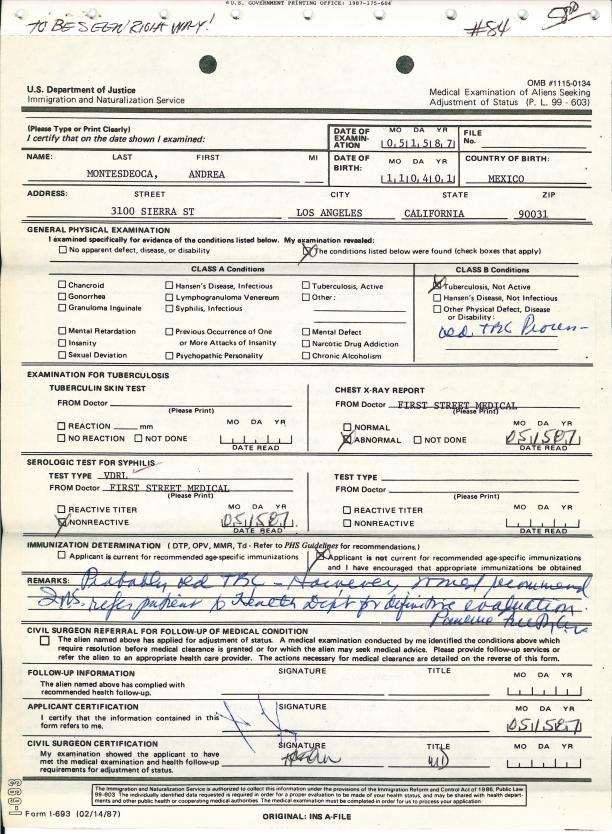 ☆ U.S. GOVERNMENT PRINTING OFFICE: 1987-175-604
TO BE SEEN RIGHT WAY!
#84
U.S. Department of Justice
Immigration and Naturalization Service
OMB #1115-0134
Medical Examination of Aliens Seeking
Adjustment of Status (P. L. 99 - 603)
(Please Type or Print Clearly)
I certify that on the date shown I examined:
DATE OF EXAMIN- ATION MO DA YR 05 15 87
FILE No.
NAME: LAST FIRST MI
MONTESDEOCA, ANDREA
DATE OF BIRTH: MO DA YR 11 04 01
COUNTRY OF BIRTH:
MEXICO
ADDRESS: STREET CITY STATE ZIP
3100 SIERRA ST LOS ANGELES CALIFORNIA 90031
GENERAL PHYSICAL EXAMINATION
I examined specifically for evidence of the conditions listed below. My examination revealed:
No apparent defect, disease, or disability
The conditions listed below were found (check boxes that apply)
CLASS A CONDITIONS
Chancroid Hansen's Disease, Infectious Tuberculosis, Active
Gonorrhea Lymphogranuloma Venereum Other:
Granuloma Inguinale Syphilis, Infectious
Mental Retardation Previous Occurrence of One Mental Defect
Insanity or More Attacks of Insanity Narcotic Drug Addiction
Sexual Deviation Psychopathic Personality Chronic Alcoholism
CLASS B CONDITIONS
Tuberculosis, Not Active
Hansen's Disease, Not Infectious
Other Physical Defect, Disease
or Disability:
old TBC Process
EXAMINATION FOR TUBERCULOSIS
TUBERCULIN SKIN TEST
FROM Doctor
(Please Print)
REACTION mm MO DA YR
NO REACTION NOT DONE
DATE READ
CHEST X-RAY REPORT
FROM Doctor FIRST STREET MEDICAL
(Please Print)
NORMAL MO DA YR
ABNORMAL NOT DONE 05 15 87
DATE READ
SEROLOGIC TEST FOR SYPHILIS
TEST TYPE VDRL
FROM Doctor FIRST STREET MEDICAL
(Please Print)
REACTIVE TITER MO DA YR
NONREACTIVE 05 15 87
DATE READ
TEST TYPE
FROM Doctor
(Please Print)
REACTIVE TITER MO DA YR
NONREACTIVE
DATE READ
IMMUNIZATION DETERMINATION (DTP, OPV, MMR, Td - Refer to PHS Guidelines for recommendations.)
Applicant is current for recommended age-specific immunizations
Applicant is not current for recommended age-specific immunizations
and I have encouraged that appropriate immunizations be obtained
REMARKS: Probably old TBC - However, would recommend
INS. refer patient to Health Dept for definitive evaluation.
CIVIL SURGEON REFERRAL FOR FOLLOW-UP OF MEDICAL CONDITION
The alien named above has applied for adjustment of status. A medical examination conducted by me identified the conditions above which
require resolution before medical clearance is granted or for which the alien may seek medical advice. Please provide follow-up services or
refer the alien to an appropriate health care provider. The actions necessary for medical clearance are detailed on the reverse of this form.
FOLLOW-UP INFORMATION SIGNATURE TITLE MO DA YR
The alien named above has complied with
recommended health follow-up.
APPLICANT CERTIFICATION SIGNATURE MO DA YR
I certify that the information contained in this
form refers to me.
05 15 87
CIVIL SURGEON CERTIFICATION SIGNATURE TITLE MO DA YR
My examination showed the applicant to have
met the medical examination and health follow-up
requirements for adjustment of status.
MD
The Immigration and Naturalization Service is authorized to collect this information under the provisions of the Immigration Reform and Control Act of 1986, Public Law
99-603. The individually identified data requested is required in order for a proper evaluation to be made of your health status, and may be shared with health depart-
ments and other public health or cooperating medical authorities. The medical examination must be completed in order for us to process your application.
Form I-693 (02/14/87)
ORIGINAL: INS A-FILE